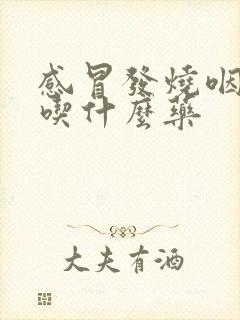 感冒發燒咽
喫什麼藥
大夫有酒